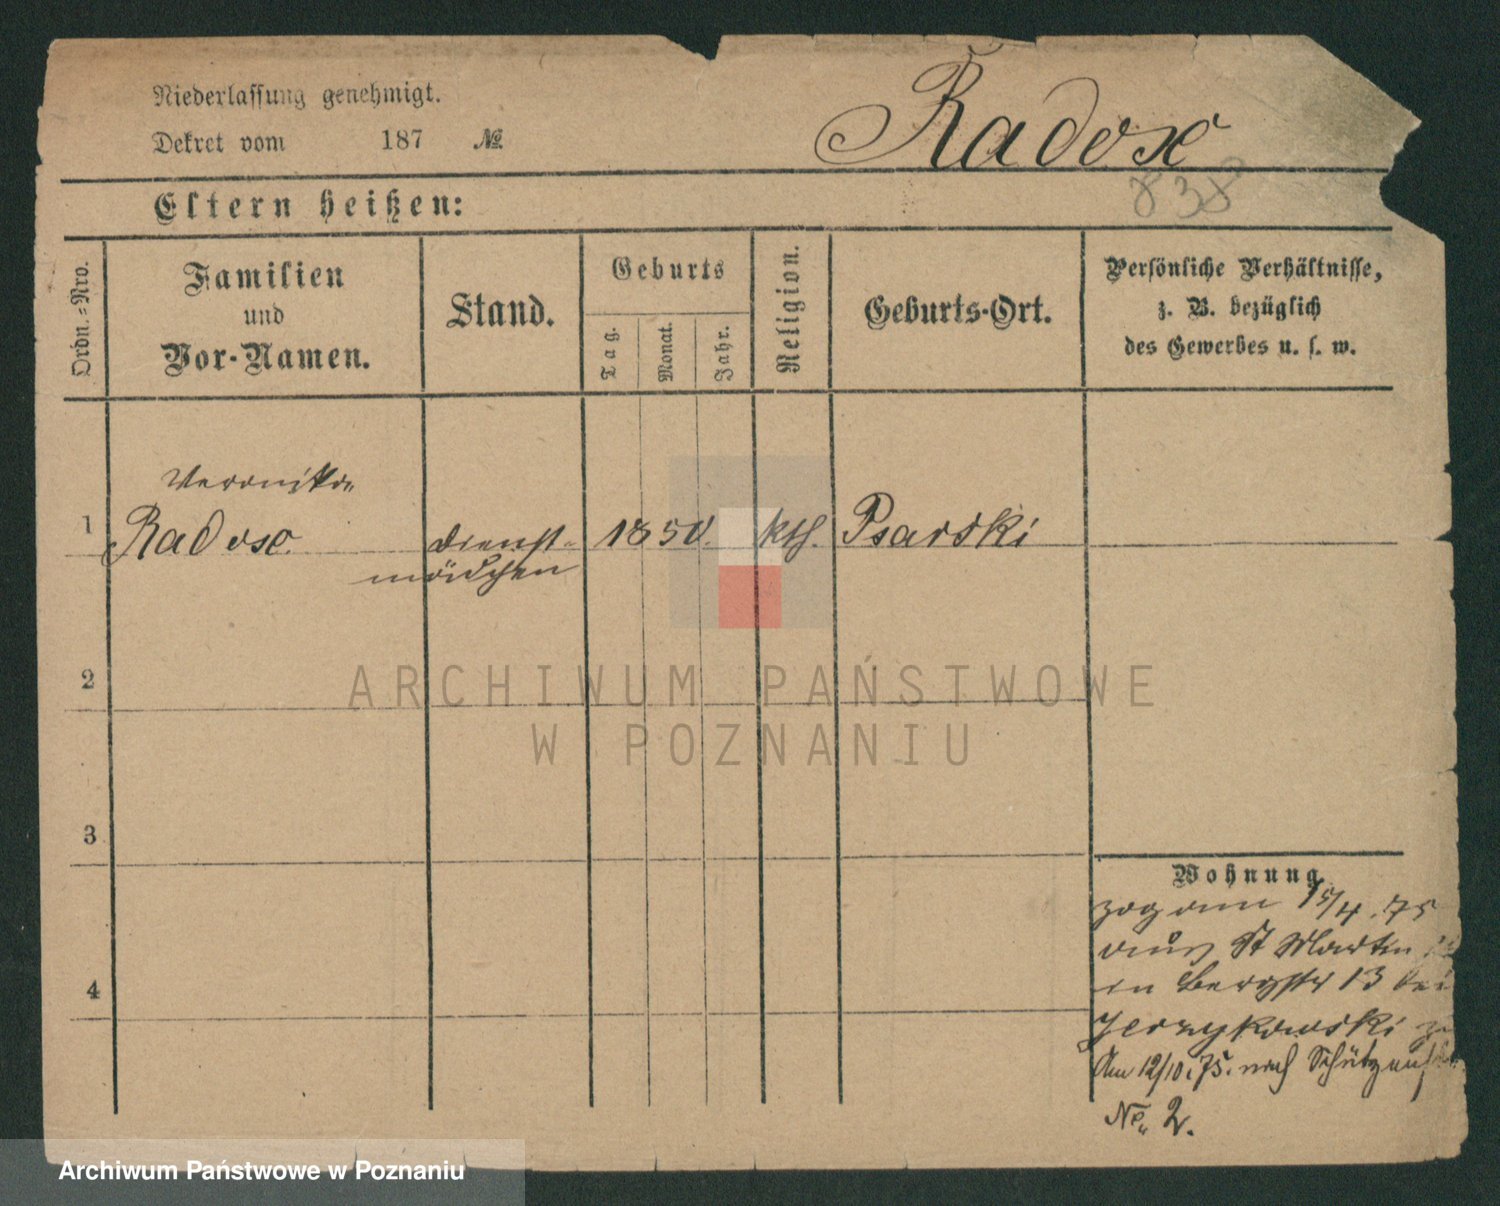 Niederlassung genehmigt.
Dekret vom 187 №
Radosc
838
Eltern heißen:
Ordn.-Nro.
Familien
und
Vor-Namen.
Stand.
Geburts
Tag.
Monat.
Jahr.
Religion.
Geburts-Ort.
Persönliche Verhältnisse,
z. B. bezüglich
des Gewerbes u. s. w.
Veronika
1 Radosc Dienst- 1850. kth. Psarski
mädchen
2
ARCHIWUM PAŃSTWOWE
W POZNANIU
3
4
Wohnung
zog am 15/4.75
aus St Martin
in Bergstr 13 bei
Jerzykowski
Am 12/10.75. nach Schützenstr
No. 2.
Archiwum Państwowe w Poznaniu